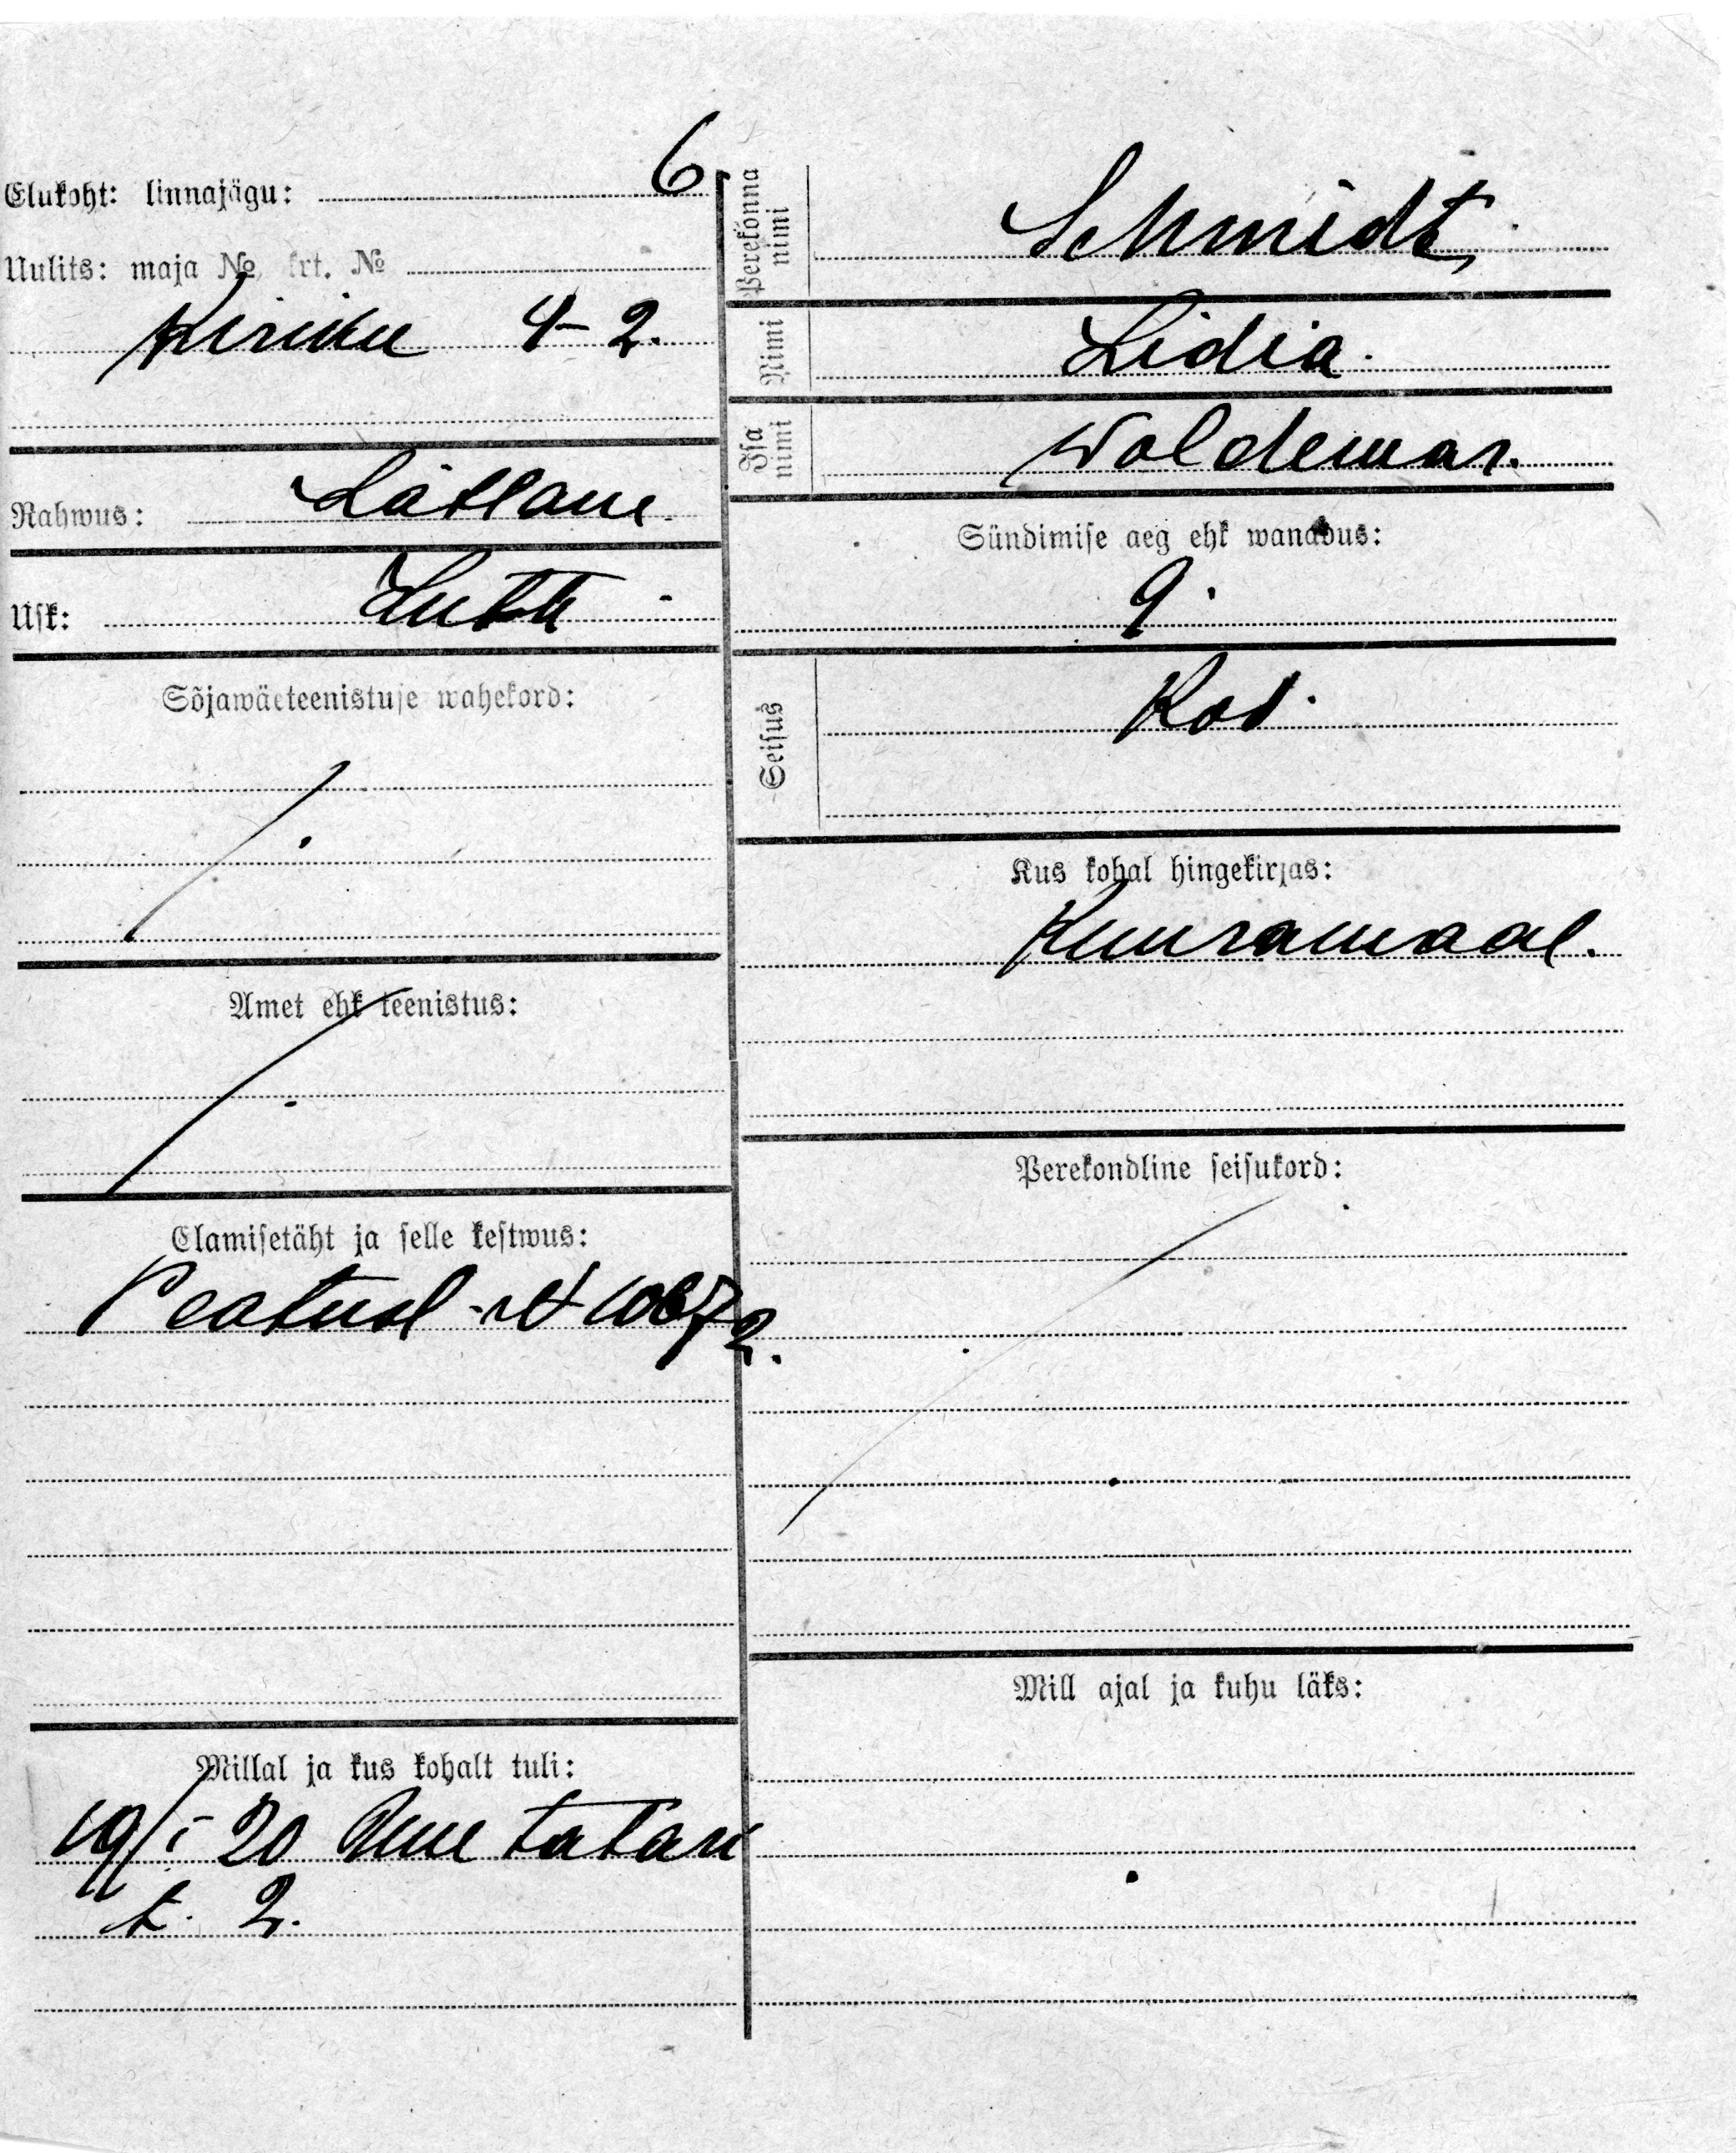 Elukoht: linnajägu: 6.
Uulits: maja № krt. №
Kiriku 4-2.
Rahwus: Lätlane.
Usk: Luth
Sõjawäeteenistuse wahekord:
Amet ehk teenistus:
Elamisetäht ja selle kestwus:
Peatud
Millal ja kus kohalt tuli:
19/I 20 Uue Tatari
t. 2.
Perekonna nimi
Schmidt
Nimi
Lidia.
Isa nimi
Woldemar.
Sündimise aeg ehk wanadus:
9.
Seisus
Kod.
Kus kohal hingekirjas:
Kuuramaal.
Perekondline seisukord:
Mill ajal ja kuhu läks: